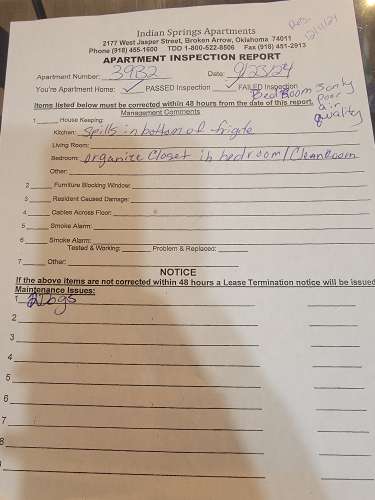 Indian Springs Apartments
2177 West Jasper Street, Broken Arrow, Oklahoma 74011
Phone (918) 455-1600 TDD 1-800-522-8506 Fax (918) 451-2913
APARTMENT INSPECTION REPORT
Apartment Number: 3932 Date:
You're Apartment Home: ✓ PASSED Inspection FAILED Inspection
BedRoom
air
quality
Items listed below must be corrected within 48 hours from the date of this report.
Management Comments
1 House Keeping:
Kitchen: Spills in bottom of frigde
Living Room:
Bedroom: organize closet in bedroom/Clean Room
Other:
2 Furniture Blocking Window:
3 Resident Caused Damage:
4 Cables Across Floor:
5 Smoke Alarm:
6 Smoke Alarm:
Tested & Working: Problem & Replaced:
7 Other:
NOTICE
If the above items are not corrected within 48 hours a Lease Termination notice will be issued
Maintenance Issues:
1 2 Dogs
2
3
4
5
6
7
8